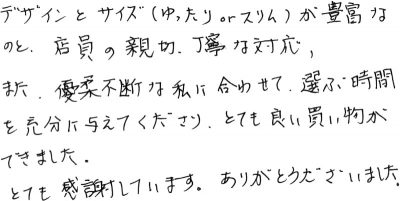 デザインとサイズ(ゆったりorスリム)が豊富な
のと、店員の親切、丁寧な対応，
また、優柔不断な私に合わせて、選ぶ時間
を充分に与えてくださり、とても良い買い物が
できました。
とても感謝しています。ありがとうございました。